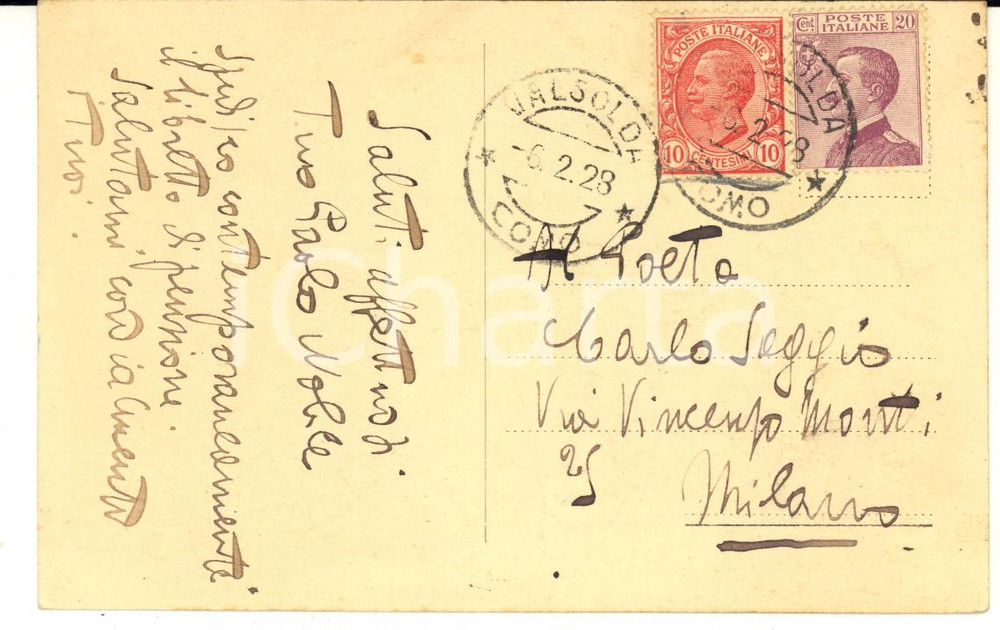 Saluti affettuosi.
Tuo Paolo Nobile
Spedisco contemporaneamente
il libretto di pensione.
Salutami
Tuoi
VALSOLDA
-6.2.28
COMO
POSTE ITALIANE
10 CENTESIMI 10
Cent POSTE 20
ITALIANE
OLDA
6.2.28
COMO
Al Poeta
Carlo Seggio
Via Vincenzo Monti
25
Milano
iCharta